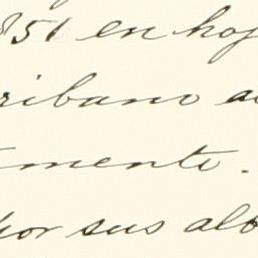 851 en hoj
ribano au
mente.
por sus alt